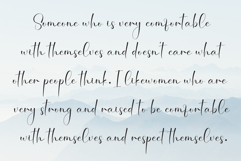 Someone who is very comfortable
with themselves and doesn't care what
other people think. I likewomen who are
very strong and raised to be comfortable
with themselves and respect themselves.